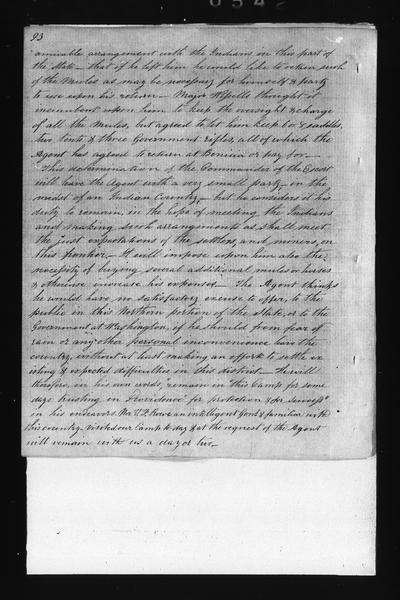 0342
93
amicable arrangement with the Indians in this part of
the State - that if he left him he would like to retain such
of the Mules as may be necessary for himself & party
to use upon his return - Major Wessells thought it
incumbent upon him to keep the oversight & charge
of all the Mules, but agreed to let him keep 6 or 8 saddles,
two tents & three Government rifles, all of which the
Agent has agreed to return at Benicia or pay for. -
This determination of the Commander of the Escort
will leave the Agent with a very small party - in the
midst of an Indian Country, - but he considers it his
duty to remain, in the hope of meeting the Indians
and making such arrangements as shall meet
the just expectations of the settlers, and miners, on
this frontier. - It will impose upon him also the
necessity of buying several additional mules or horses
& otherwise increase his expenses. - The Agent thinks
he would have no satisfactory excuse to offer, to the
public in this Northern portion of the State, or to the
Government at Washington, if he should from fear of
rain or any other personal inconvenience leave the
country, without at least making an effort to settle ex
isting & expected difficulties in this district. - He will
therefore, in his own words, "remain in this Camp for some
days trusting in Providence" for protection & for success
in his endeavors. Mr. an intelligent Gent & familiar with
this country - visited our Camp to day & at the request of the Agent
will remain with us a day or two. -